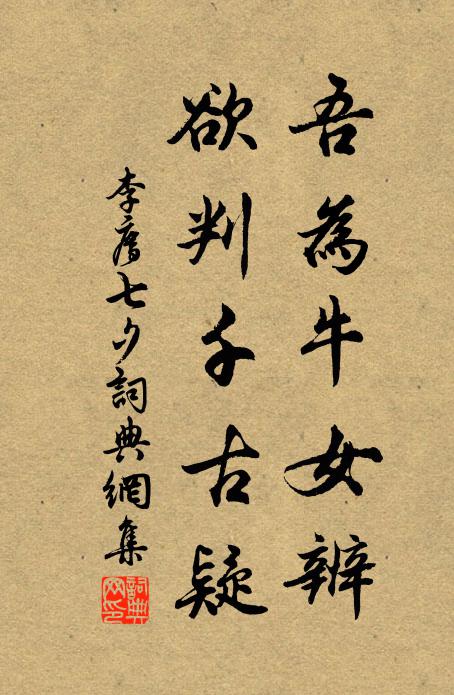 吾為牛女辨
欲判千古疑
李廌七夕詞典網集
詞典网印